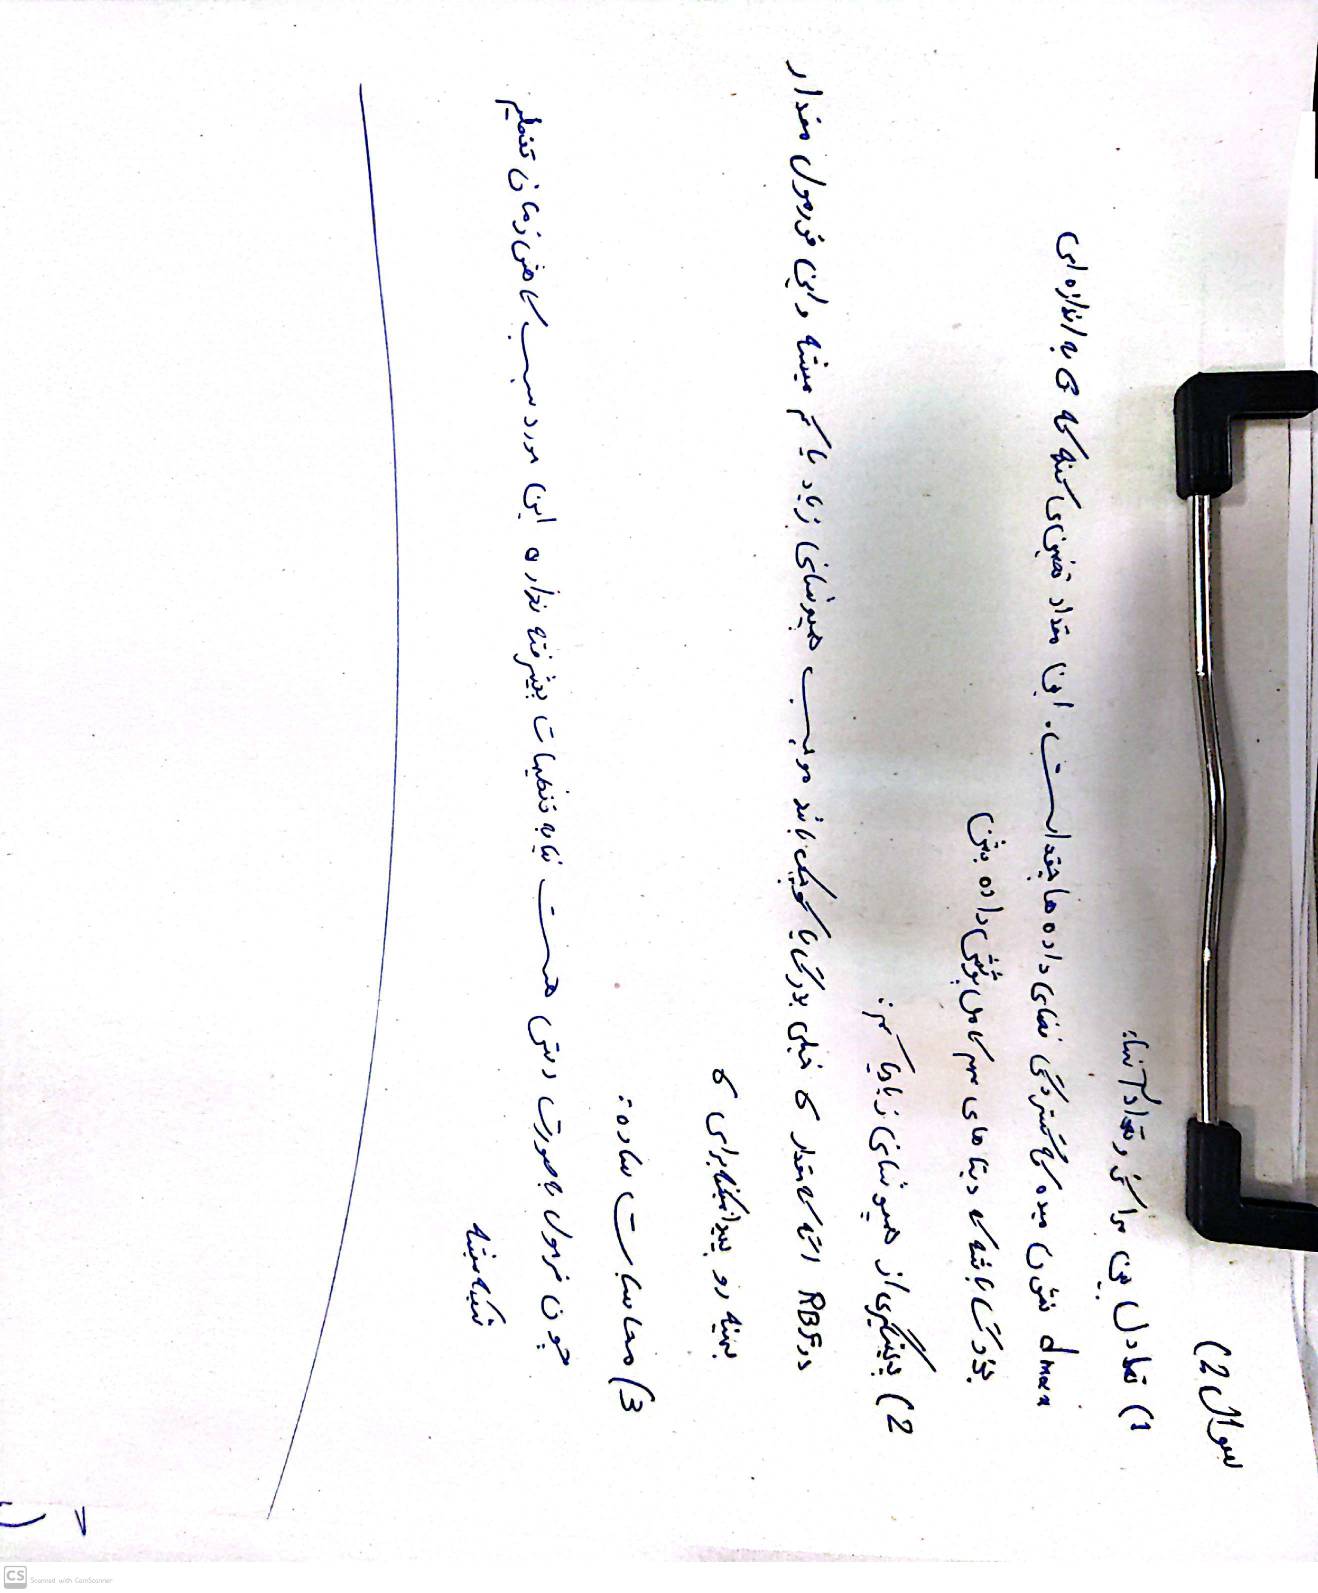 سوال 2)
1) تعادل بین مراکز و تعداد آنها:
dmax نشون میده که گستردگی فضای داده ها چقدر است. این مقدار تضمین می کنه که σ به اندازه ای
بزرگ باشه که دیتا های مهم کامل پوشش داده بشن
2) پیشگیری از همپوشانی زیاد یا کم:
در RBF اگه که مقدار σ خیلی بزرگ یا کوچک باشد موجب همپوشانی زیاد یا کم میشه و این فورمول مقدار
بهینه رو پیدا میکنه برای σ
3) محاسبات ساده:
چون فرمول به صورت دستی هست نیا به تنظیمات پیشرفته نداره این مورد سبب کاهش زمانی تنظیم
شبکه میشه
CS Scanned with CamScanner